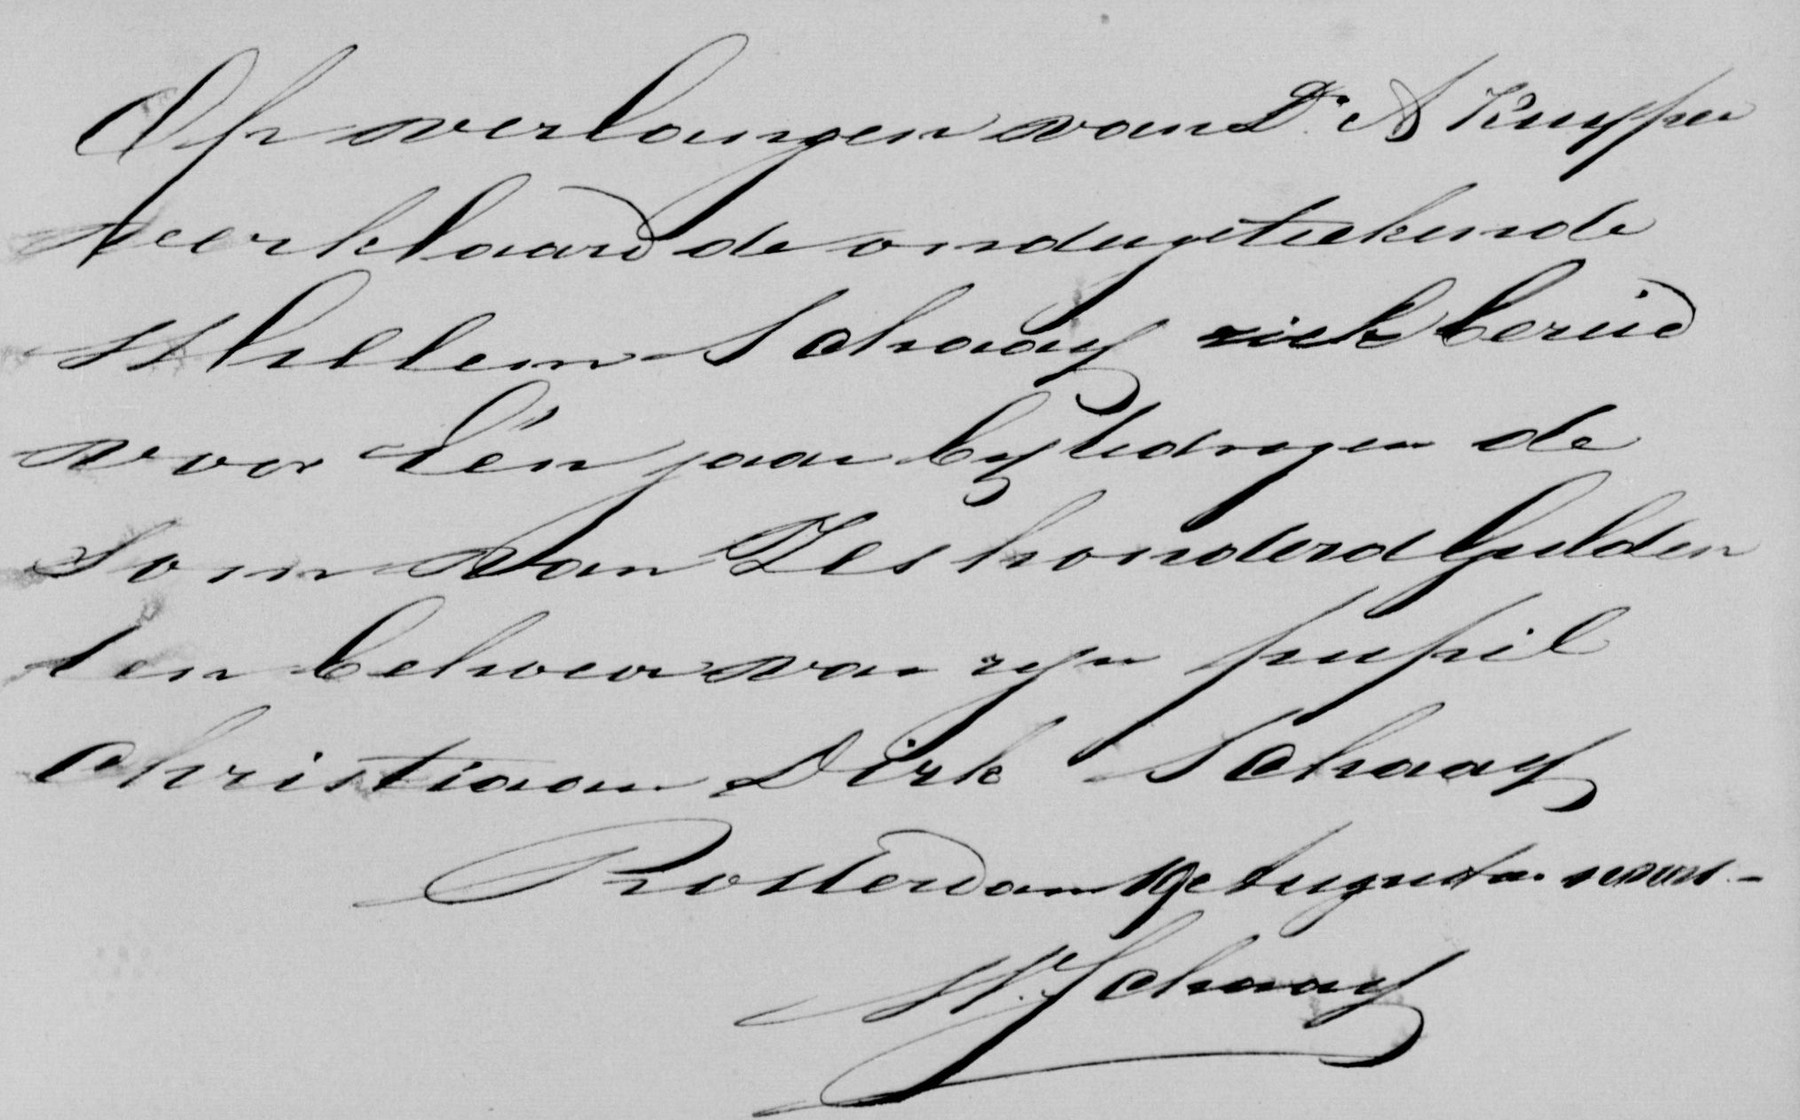 Op verlangen van Dr. A Kuyper
verklaard de ondergetekende
Willem Schaay zich bereid
voor één jaar bij te dragen de
Som van Zeshonderd Gulden
ten behoeve van zijn pupil
Christiaan Dirk Schaay
Rotterdam 19e Augustus
W. Schaay